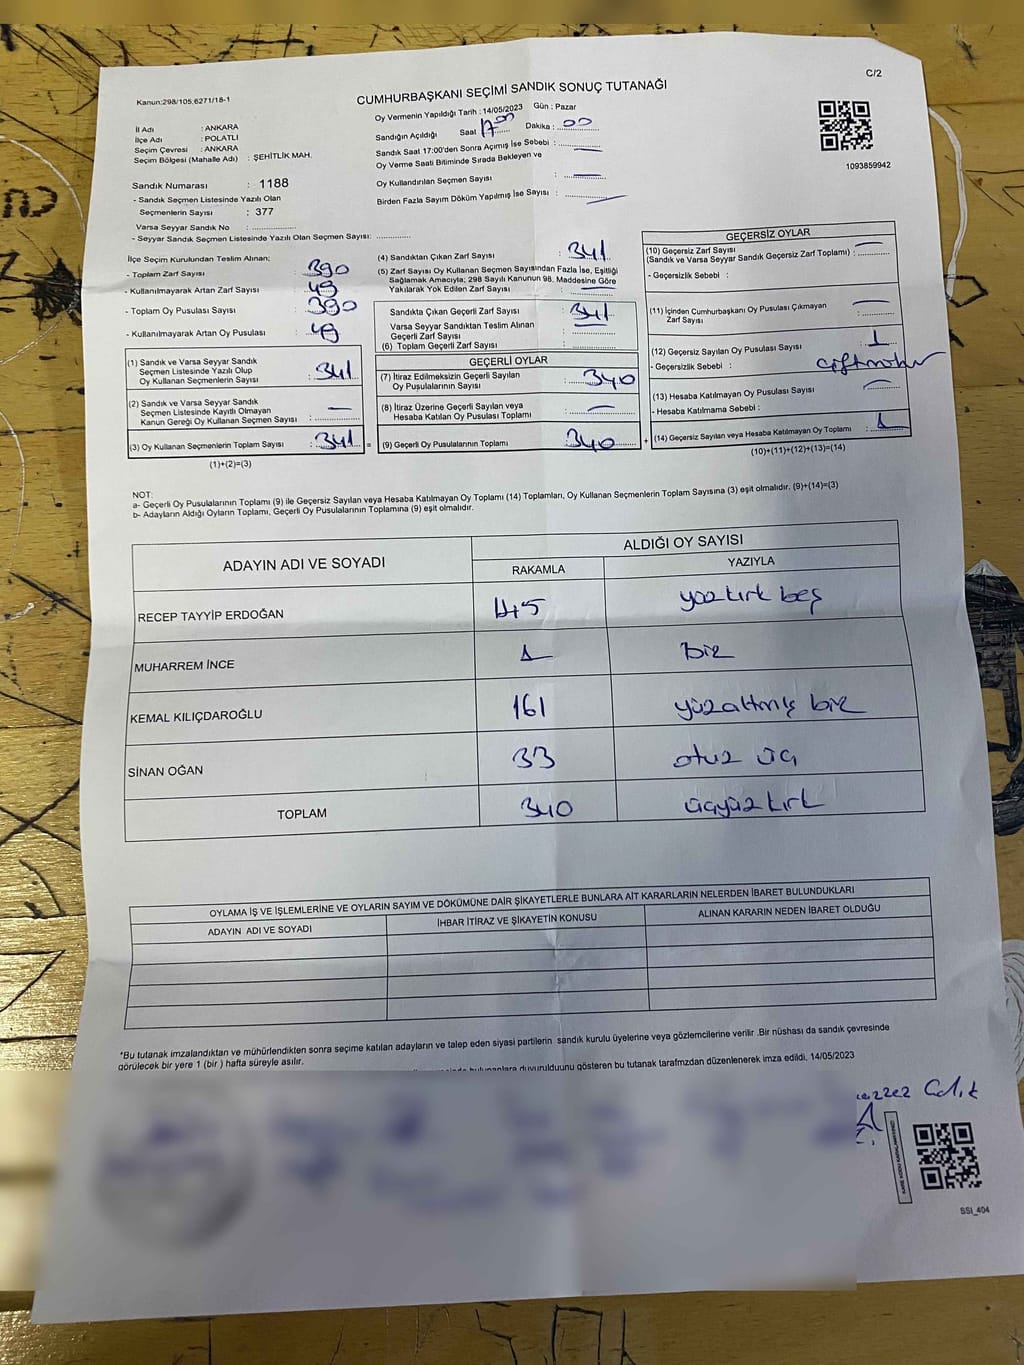 C/2
Kanun:298/105,6271/18-1
CUMHURBAŞKANI SEÇİMİ SANDIK SONUÇ TUTANAĞI
Oy Vermenin Yapıldığı Tarih : 14/05/2023 Gün : Pazar
İl Adı : ANKARA
İlçe Adı : POLATLI
Seçim Çevresi : ANKARA
Seçim Bölgesi (Mahalle Adı) : ŞEHİTLİK MAH.
Sandığın Açıldığı Saat 17.00 Dakika : 00
Sandık Saat 17:00'den Sonra Açımış İse Sebebi : —
Oy Verme Saati Bitiminde Sırada Bekleyen ve
Oy Kullandırılan Seçmen Sayısı : —
Birden Fazla Sayım Döküm Yapılmış İse Sayısı : —
1093859942
Sandık Numarası : 1188
- Sandık Seçmen Listesinde Yazılı Olan
Seçmenlerin Sayısı : 377
Varsa Seyyar Sandık No : ..............
- Seyyar Sandık Seçmen Listesinde Yazılı Olan Seçmen Sayısı: ............
İlçe Seçim Kurulundan Teslim Alınan;
- Toplam Zarf Sayısı : 390
- Kullanılmayarak Artan Zarf Sayısı : 49
- Toplam Oy Pusulası Sayısı : 390
- Kullanılmayarak Artan Oy Pusulası : 49
(1) Sandık ve Varsa Seyyar Sandık
Seçmen Listesinde Yazılı Olup
Oy Kullanan Seçmenlerin Sayısı : 341
(2) Sandık ve Varsa Seyyar Sandık
Seçmen Listesinde Kayıtlı Olmayan
Kanun Gereği Oy Kullanan Seçmen Sayısı : —
(3) Oy Kullanan Seçmenlerin Toplam Sayısı : 341 =
(1)+(2)=(3)
(4) Sandıktan Çıkan Zarf Sayısı : 341
(5) Zarf Sayısı Oy Kullanan Seçmen Sayısından Fazla İse, Eşitliği
Sağlamak Amacıyla; 298 Sayılı Kanunun 98. Maddesine Göre
Yakılarak Yok Edilen Zarf Sayısı : —
Sandıkta Çıkan Geçerli Zarf Sayısı : 341
Varsa Seyyar Sandıktan Teslim Alınan
Geçerli Zarf Sayısı : —
(6) Toplam Geçerli Zarf Sayısı :
GEÇERLİ OYLAR
(7) İtiraz Edilmeksizin Geçerli Sayılan
Oy Pusulalarının Sayısı : 340
(8) İtiraz Üzerine Geçerli Sayılan veya
Hesaba Katılan Oy Pusulası Toplamı : —
(9) Geçerli Oy Pusulalarının Toplamı : 340 +
GEÇERSİZ OYLAR
(10) Geçersiz Zarf Sayısı
(Sandık ve Varsa Seyyar Sandık Geçersiz Zarf Toplamı) : —
- Geçersizlik Sebebi :
(11) İçinden Cumhurbaşkanı Oy Pusulası Çıkmayan
Zarf Sayısı : —
(12) Geçersiz Sayılan Oy Pusulası Sayısı : 1
- Geçersizlik Sebebi :
(13) Hesaba Katılmayan Oy Pusulası Sayısı : —
- Hesaba Katılmama Sebebi :
(14) Geçersiz Sayılan veya Hesaba Katılmayan Oy Toplamı : 1
(10)+(11)+(12)+(13)=(14)
NOT:
a- Geçerli Oy Pusulalarının Toplamı (9) ile Geçersiz Sayılan veya Hesaba Katılmayan Oy Toplamı (14) Toplamları, Oy Kullanan Seçmenlerin Toplam Sayısına (3) eşit olmalıdır. (9)+(14)=(3)
b- Adayların Aldığı Oyların Toplamı, Geçerli Oy Pusulalarının Toplamına (9) eşit olmalıdır.
ADAYIN ADI VE SOYADI
ALDIĞI OY SAYISI
RAKAMLA YAZIYLA
RECEP TAYYİP ERDOĞAN 145 yüzkırk beş
MUHARREM İNCE 1 Bir
KEMAL KILIÇDAROĞLU 161 yüzaltmış bir
SİNAN OĞAN 33 otuz üç
TOPLAM 340 üçyüz kırk
OYLAMA İŞ VE İŞLEMLERİNE VE OYLARIN SAYIM VE DÖKÜMÜNE DAİR ŞİKAYETLERLE BUNLARA AİT KARARLARIN NELERDEN İBARET BULUNDUKLARI
ADAYIN ADI VE SOYADI İHBAR İTİRAZ VE ŞİKAYETİN KONUSU ALINAN KARARIN NEDEN İBARET OLDUĞU
*Bu tutanak imzalandıktan ve mühürlendikten sonra seçime katılan adayların ve talep eden siyasi partilerin sandık kurulu üyelerine veya gözlemcilerine verilir .Bir nüshası da sandık çevresinde
görülecek bir yere 1 (bir ) hafta süreyle asılır.
duyurulduunu gösteren bu tutanak tarafımızdan düzenlenerek imza edildi. 14/05/2023
SSI_404